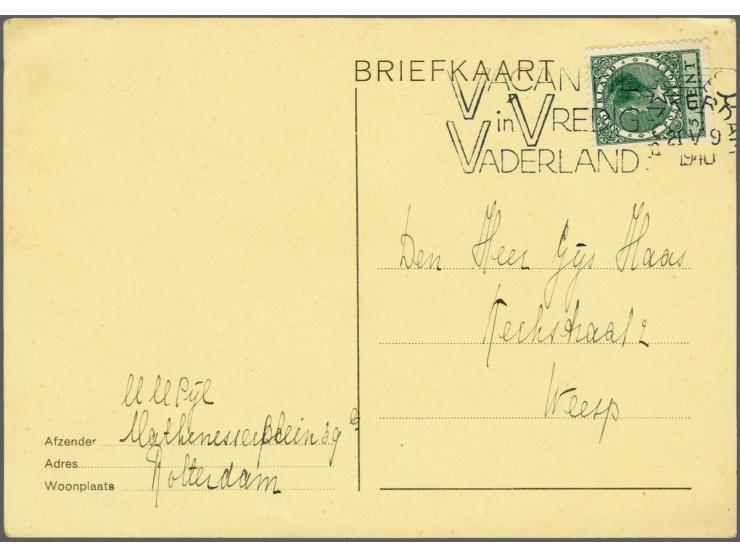 BRIEFKAART
VACANTIE
in VREDIG
VADERLAND
NEDERLAND
5 CENT
21 V 9
1940
Den Heer Gijs Haas
Kerkstraat 2
Weesp
M M Pijl
Afzender Mathenesserplein 39 b
Adres
Woonplaats Rotterdam